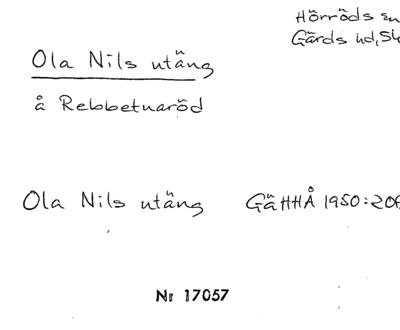 Hörröds sn
Gärds hd, Sk
Ola Nils utäng
å Rebbetuaröd
Ola Nils utäng GäHHÅ 1950:206
Nr 17057